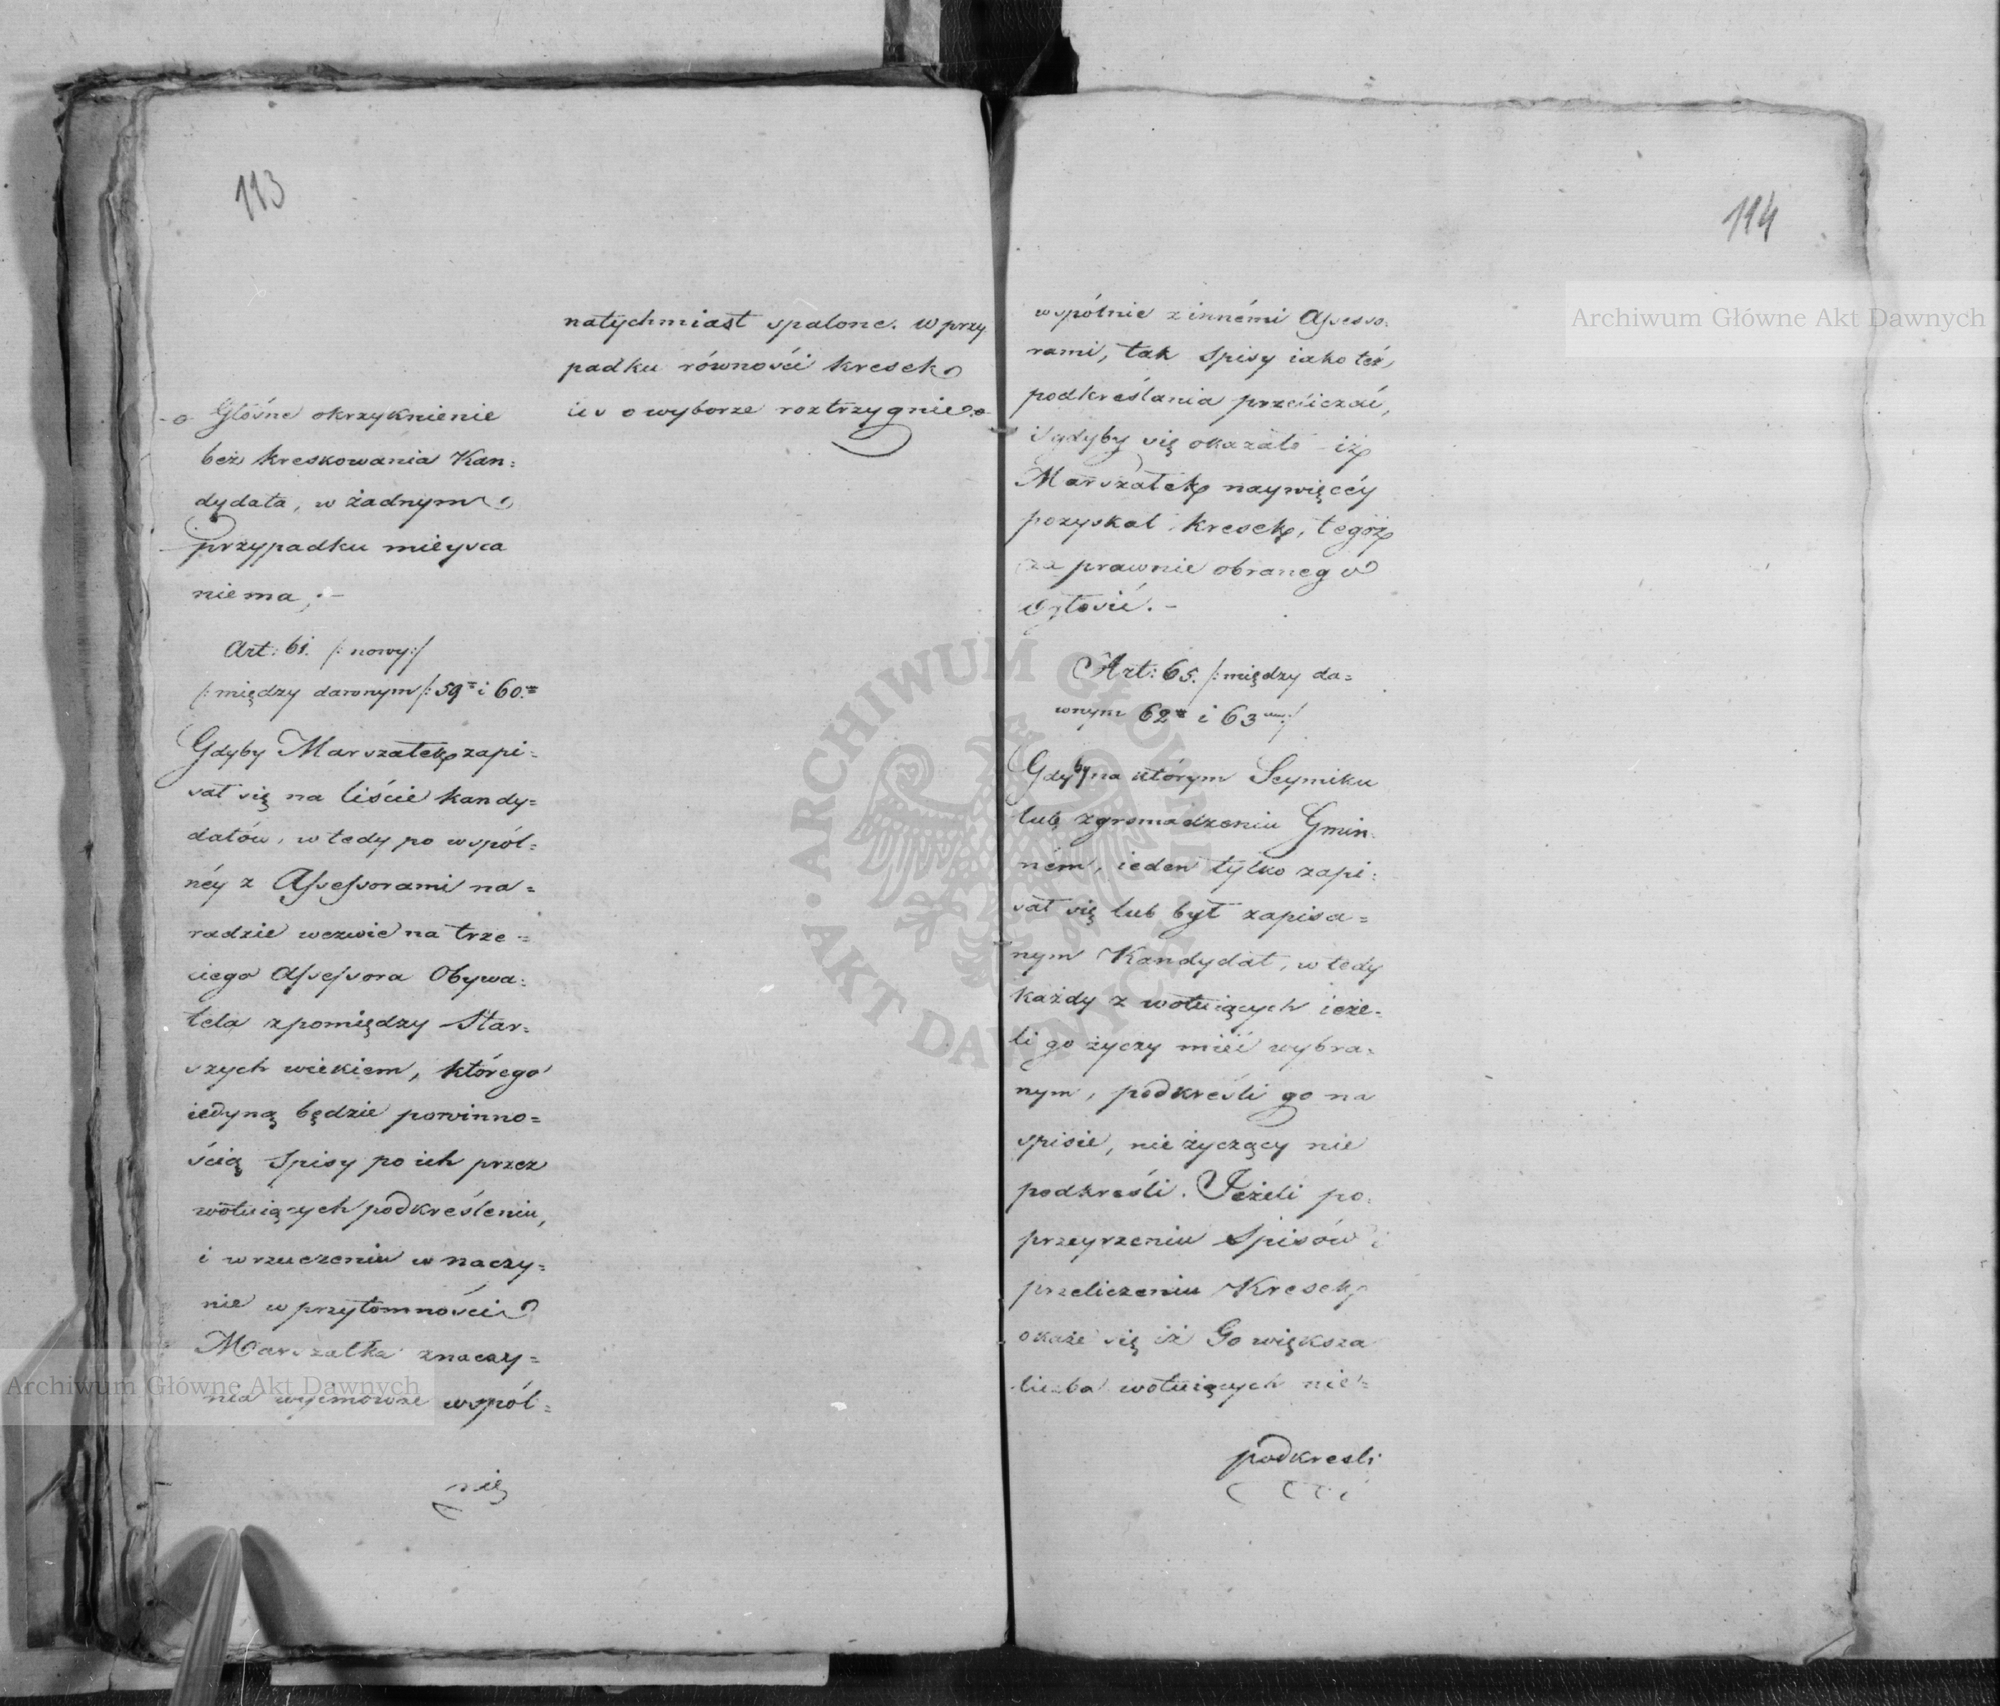 113
Głośne okrzyknienie
bez kreskowania Kan=
dydata, w żadnym
przypadku mieysca
niema;—
Art: 61. /: nowy:/
/: między dawnym /: 59m i 60.m
Gdyby Marszałek zapi=
sał się na liście kandy=
datów, wtedy po wspól=
néy z Assessorami na=
radzie wezwie na trze=
ciego Assessora Obywa=
tela zpomiędzy Star=
szych wiekiem, którego
iedyną będzie powinno=
ścią Spisy po ich przez
wotuiących podkreśleniu,
i wrzuczeniu w naczy=
nie w przytomności
Marszałka znaczy=
nia wyimowsze wspól=
nie
natychmiast spalone. W przy
padku równości kresek
los o wyborze roztrzygnie.
114
wspólnie z innémi Assesso=
rami, tak Spisy iako też,
podkreślania przeliczać,
i gdyby się okazało iż
Marszałek naywięcéy
pozyskał kresek, tegoż
za prawnie obranego
ogłosić.—
Art: 65. /: między da=
wnym 62m i 63m:/
Gdyby na którym Seymiku
lub zgromadzeniu Gmin=
ném, ieden tylko zapi=
sał się lub był zapisa=
nym Kandydat, wtedy
każdy z wotuiących ieże=
li go życzy mieć wybra=
nym, podkreśli go na
spisie, nie życzący nie
podkreśli. Jeżeli po
przeyrzeniu Spisów i
przeliczeniu Kresek
okaże się iż Go większa
liczba wotuiących nie=
podkreśli
Archiwum Główne Akt Dawnych
Archiwum Główne Akt Dawnych
ARCHIWUM GŁÓWNE · AKT DAWNYCH ·